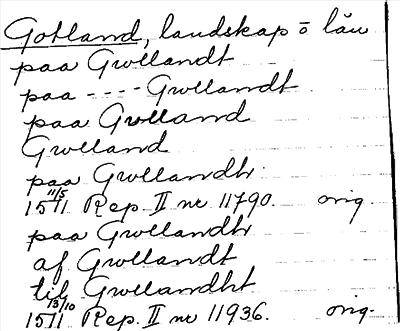 Gotland, landskap o län
paa Gwllandt
paa ---- Gwllandt
paa Gwlland
Gwlland
paa Gwllandh
11/5
1511 Rep. II nr 11790. orig.
paa Gwllandh
af Gwllandt
til Gwllandht
13/10
1511. Rep. II nr 11936. orig.